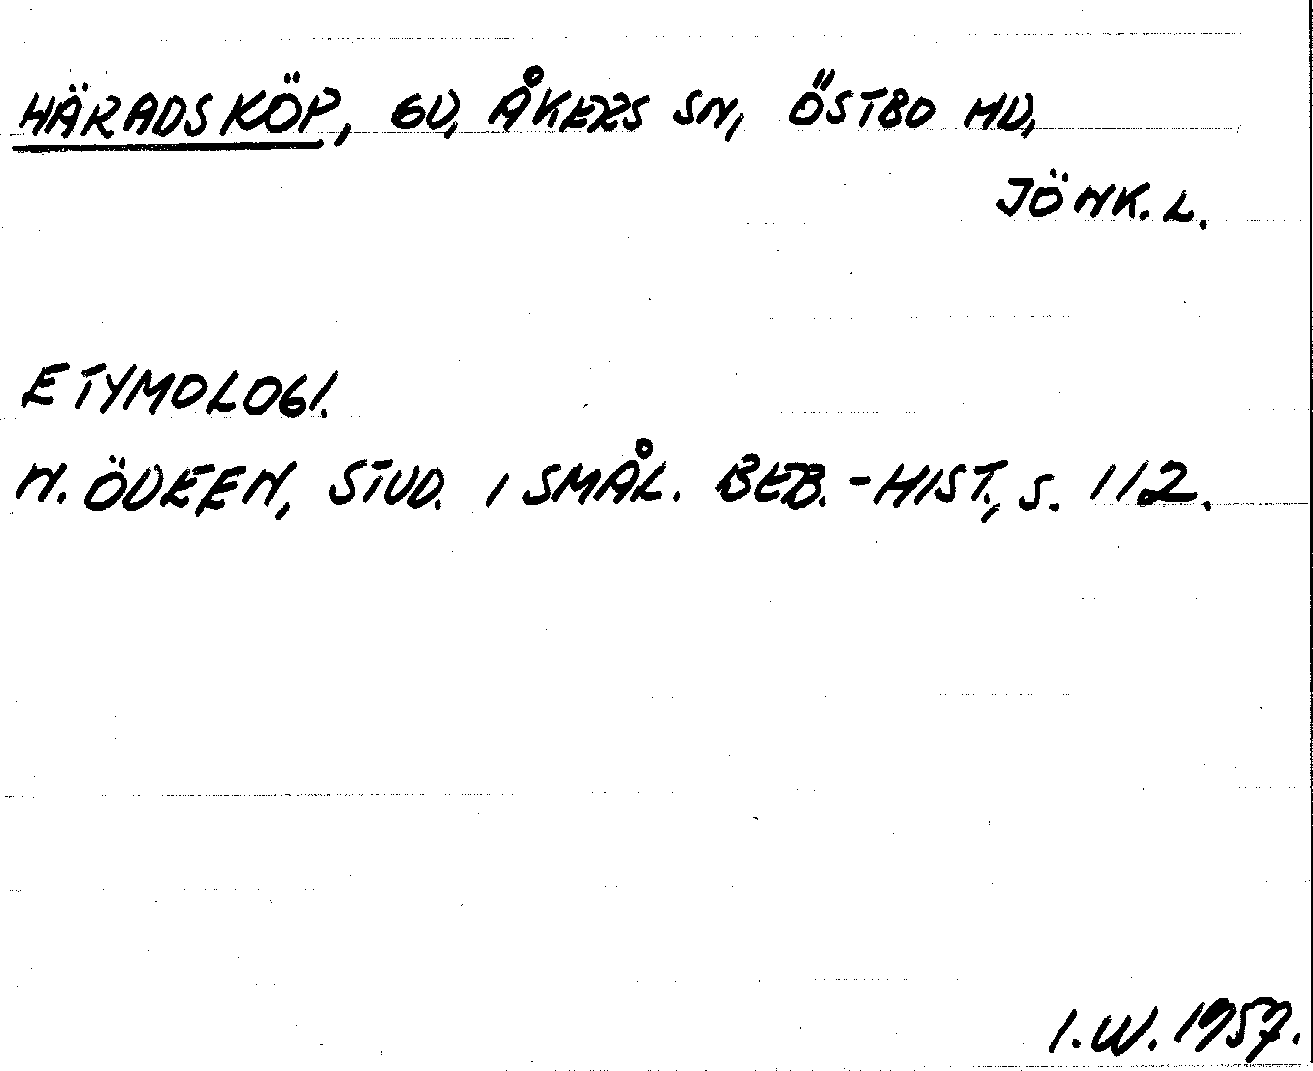 HÄRADSKÖP, GD, ÅKERS SN, ÖSTBO HD,
JÖNK. L.
ETYMOLOGI.
N. ÖDEEN, STUD. I SMÅL. BEB.-HIST., S. 112.
I.W. 1957.